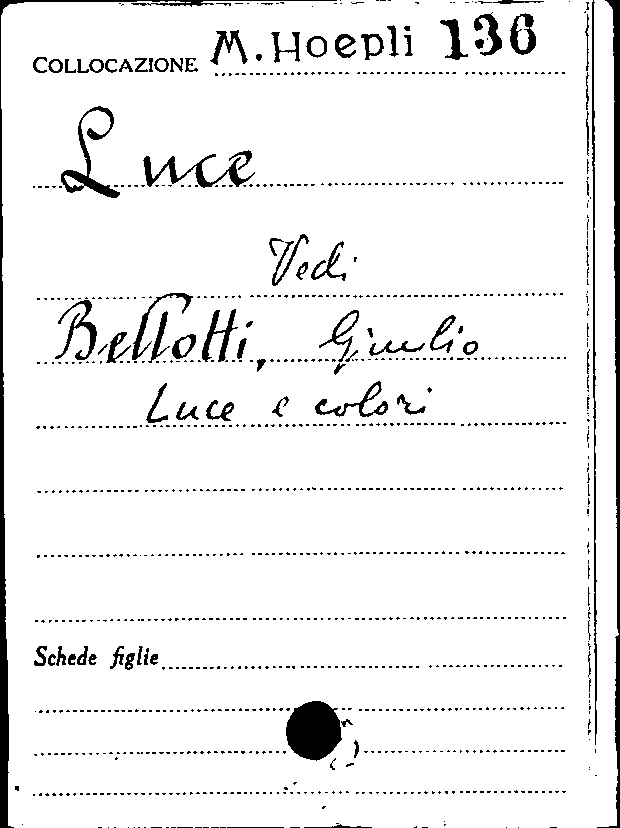 COLLOCAZIONE M. Hoepli 136
Luce
Vedi
Bellotti, Giulio
Luce e colori
Schede figlie